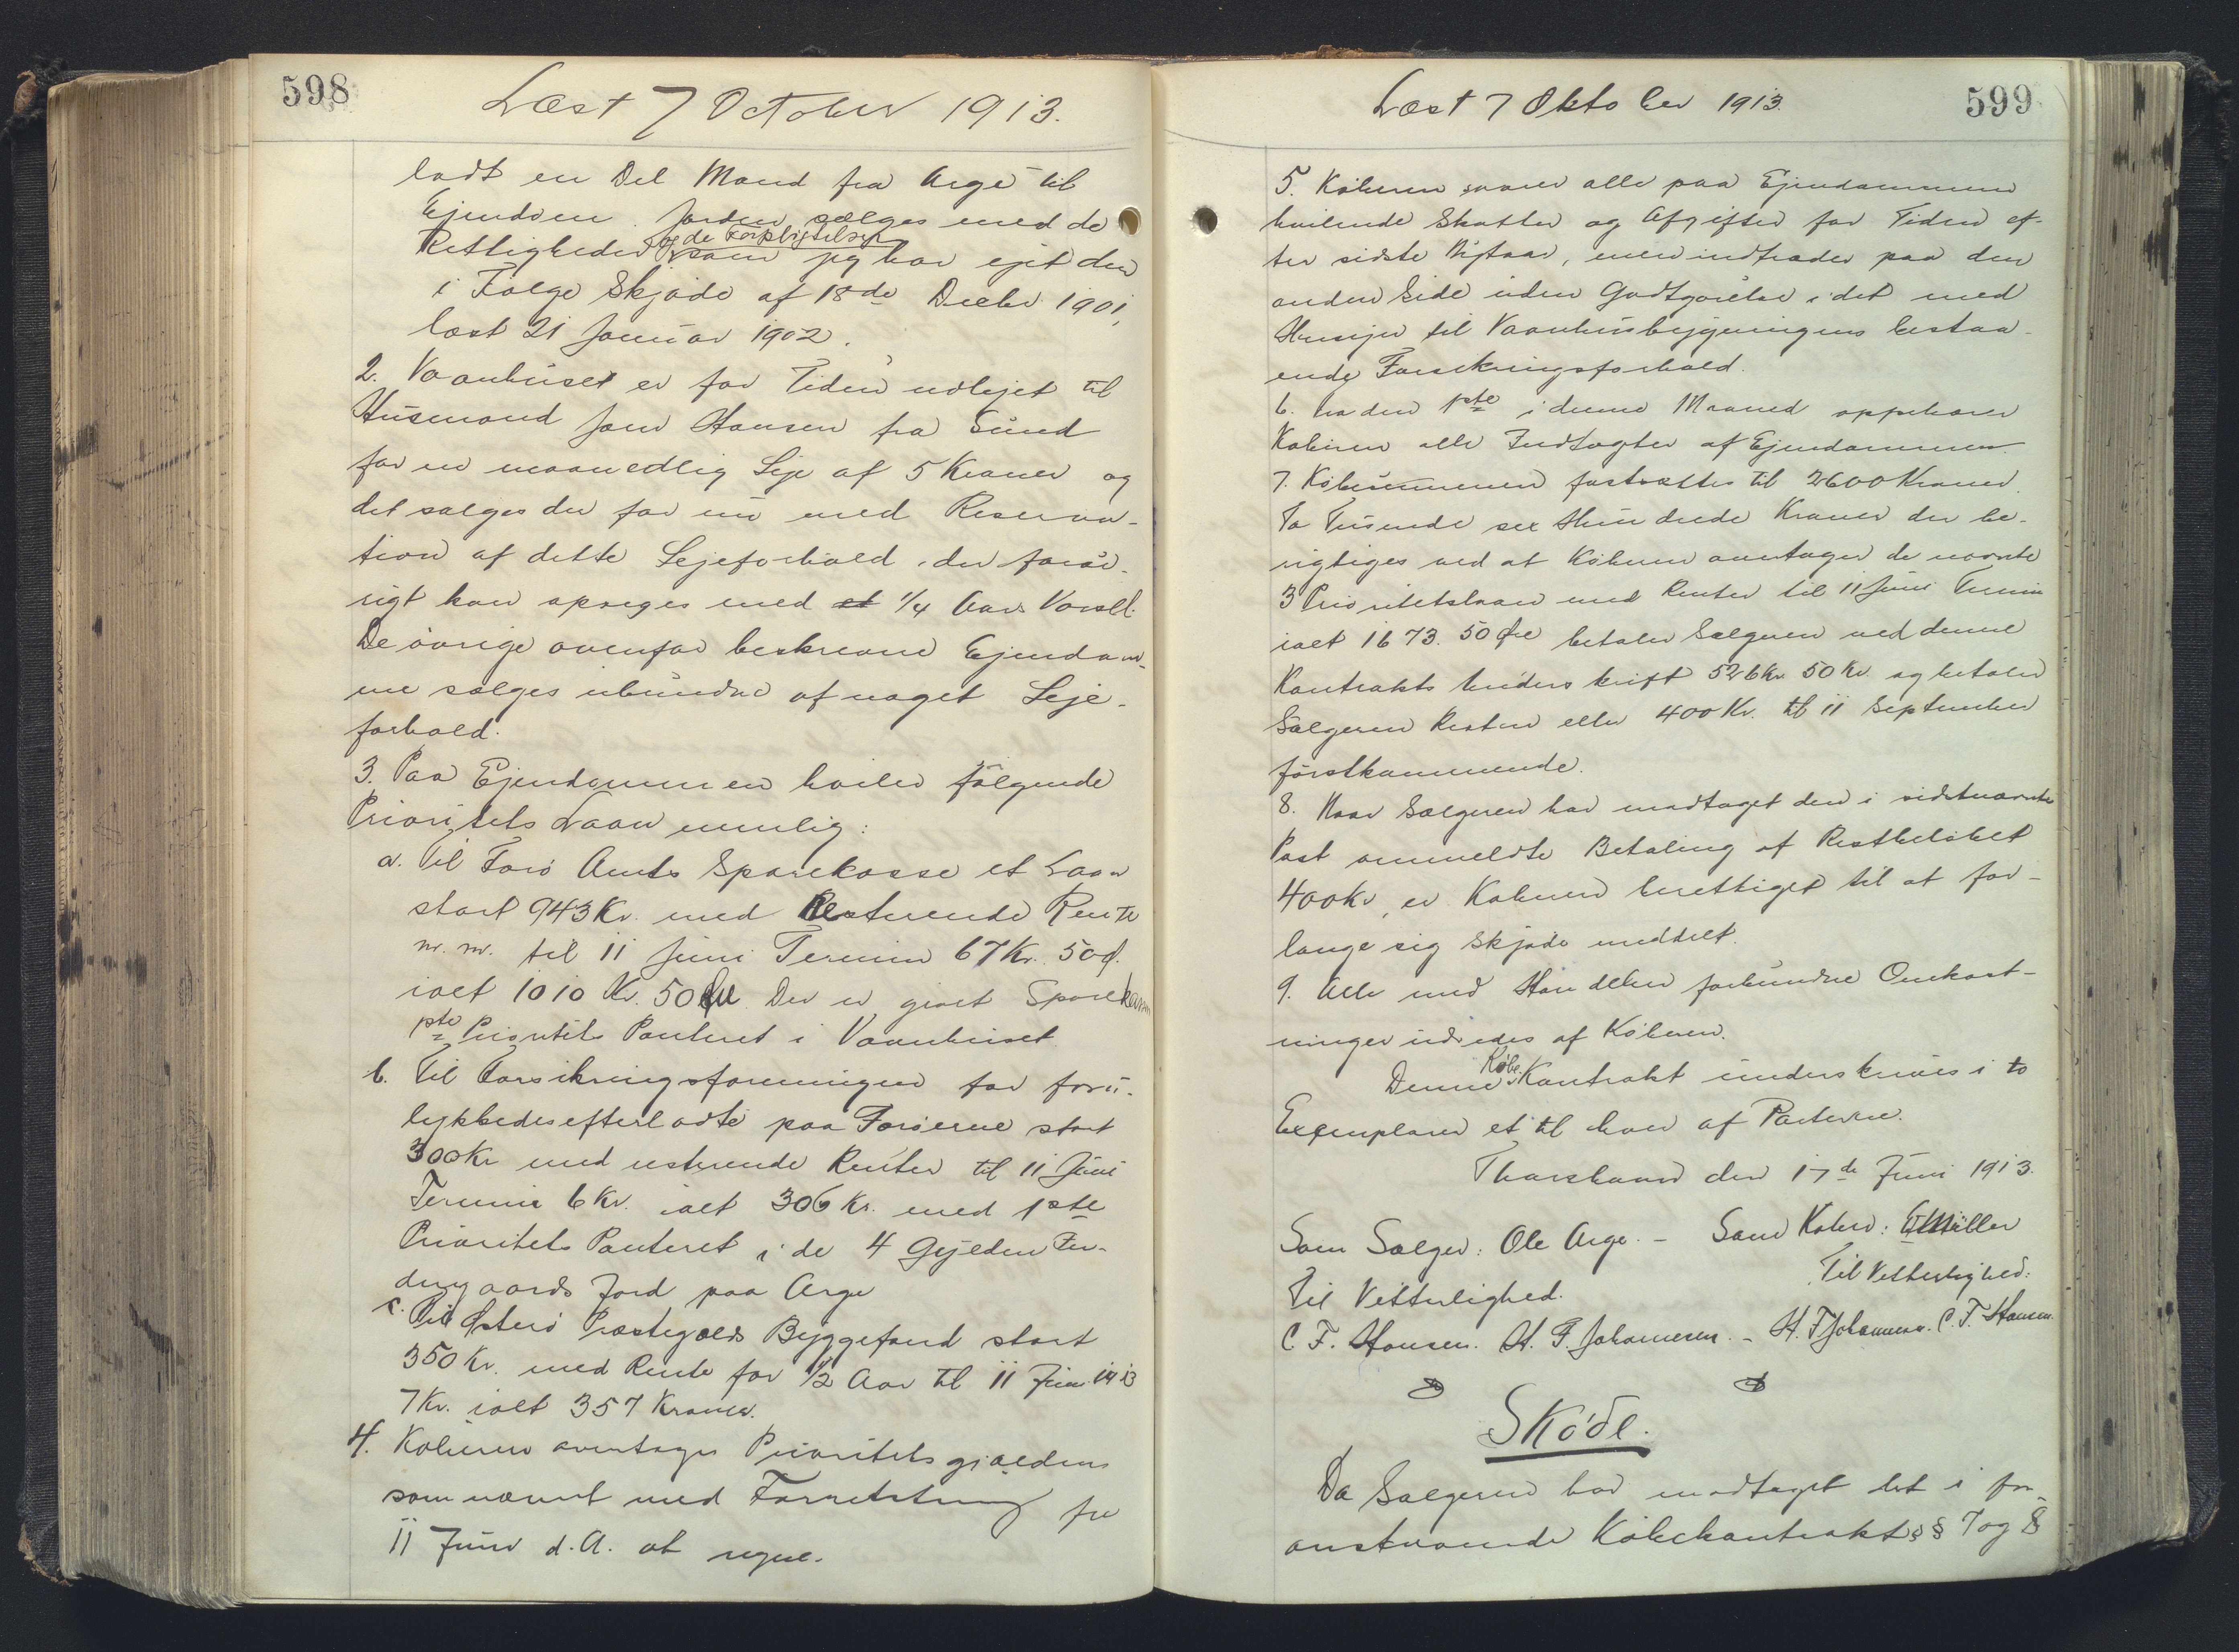 598
Læst 7 October 1913.
ladt en Del Mand fra Arge til
Ejendom. Jorden sælges med de
Rettigheder og de Forpligtelser som jeg har ejet den
i Følge Skjøde af 18de Decbr 1901,
læst 21 Januar 1902.
2. Vaanhuset er for Tiden udlejet til
Husmand Jens Hansen fra Sund
for en maanedlig Leje af 5 Kroner og
det sælges der for nu med Reserva-
tion af dette Lejeforhold, der forøv-
rigt kan opsiges med et 1/4 Aars Varsel.
De øvrige ovenfor beskrevne Ejendom-
me sælges ubundne af noget Leje-
forhold.
3. Paa Ejendommen hviler følgende
Prioritets Laan nemlig:
a. Til Færø Amts Sparekasse et Laan
stort 943 Kr. med Resterende Rente
m. m. til 11 Juni Termin 67 Kr. 50 Ø.
ialt 1010 Kr. 50 Øre Der er givet Sparekassen
1ste Prioritets Panteret i Vaanhuset
b. Til Forsikringsforeningen for foru-
lykkedes efterladte paa Færøerne stort
300 Kr med resterende Renter til 11 Juni
Termin 6 Kr. ialt 306 Kr. med 1ste
Prioritets Panteret i de 4 Gylden Fæ-
drugaards Jord paa Arge
c. Til Østerø Præstegælds Byggefond stort
350 Kr. med Rente for 1/2 Aar til 11 Juni 1913
7 Kr. ialt 357 Kroner.
4. Køberen overtager Prioritetsgjælden
som nævnt med Forrentning fra
11 Juni d. A. at regne.
Læst 7 Oktober 1913.
599
5. Køberen svarer alle paa Ejendommene
hvilende Skatter og Afgifter for Tiden ef-
ter sidste Nytaar, men indtræder paa den
anden Side uden Godtgørelse i det med
Hensyn til Vaanhusbygningens bestaa-
ende Forsikringsforhold.
6. Fra den 1ste i denne Maaned oppebærer
Køberen alle Indtægter af Ejendommen.
7. Købesummen fastsættes til 2600 Kroner
To Tusende sex Hundrede Kroner der be-
rigtiges ved at Køberen overtager de nævnte
3 Prioritetslaan med Renter til 11 Juni Termin
ialt 1673. 50 Øre betaler Sælgeren ved denne
Kontrakts Underskrift 526 Kr. 50 Kr. og betaler
Sælgeren Resten eller 400 Kr. til 11 September
førstkommende.
8. Naar Sælgeren har modtaget den i sidstnævnte
Post ommeldte Betaling af Restbeløbet
400 Kr, er Køberen berettiget til at for-
lange sig Skjøde meddelt.
9. Alle med Handelen forbundne Omkost-
ninger udredes af Køberen.
Denne Købe Kontrakt underskrives i to
Exemplarer et til hver af Parterne.
Thorshavn den 17de Juni 1913.
Som Sælger: Ole Arge. - Som Køber: E Müller
Til Vitterlighed. Til Vitterlighed:
C. F. Hansen. H. F. Johannesen. - H. F Johannesen. C. F. Hansen.
Skøde.
Da Sælgeren har modtaget det i for-
anstaaende Købekontrakts §§ 7 og 8